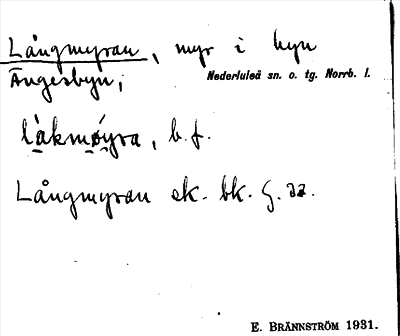 Långmyran, myr i byn
Ängesbyn,
Nederluleå sn. o. tg. Norrb. l.
lå̀kmøyra, b.f.
Långmyran ek. bk.
E. BRÄNNSTRÖM 1931.